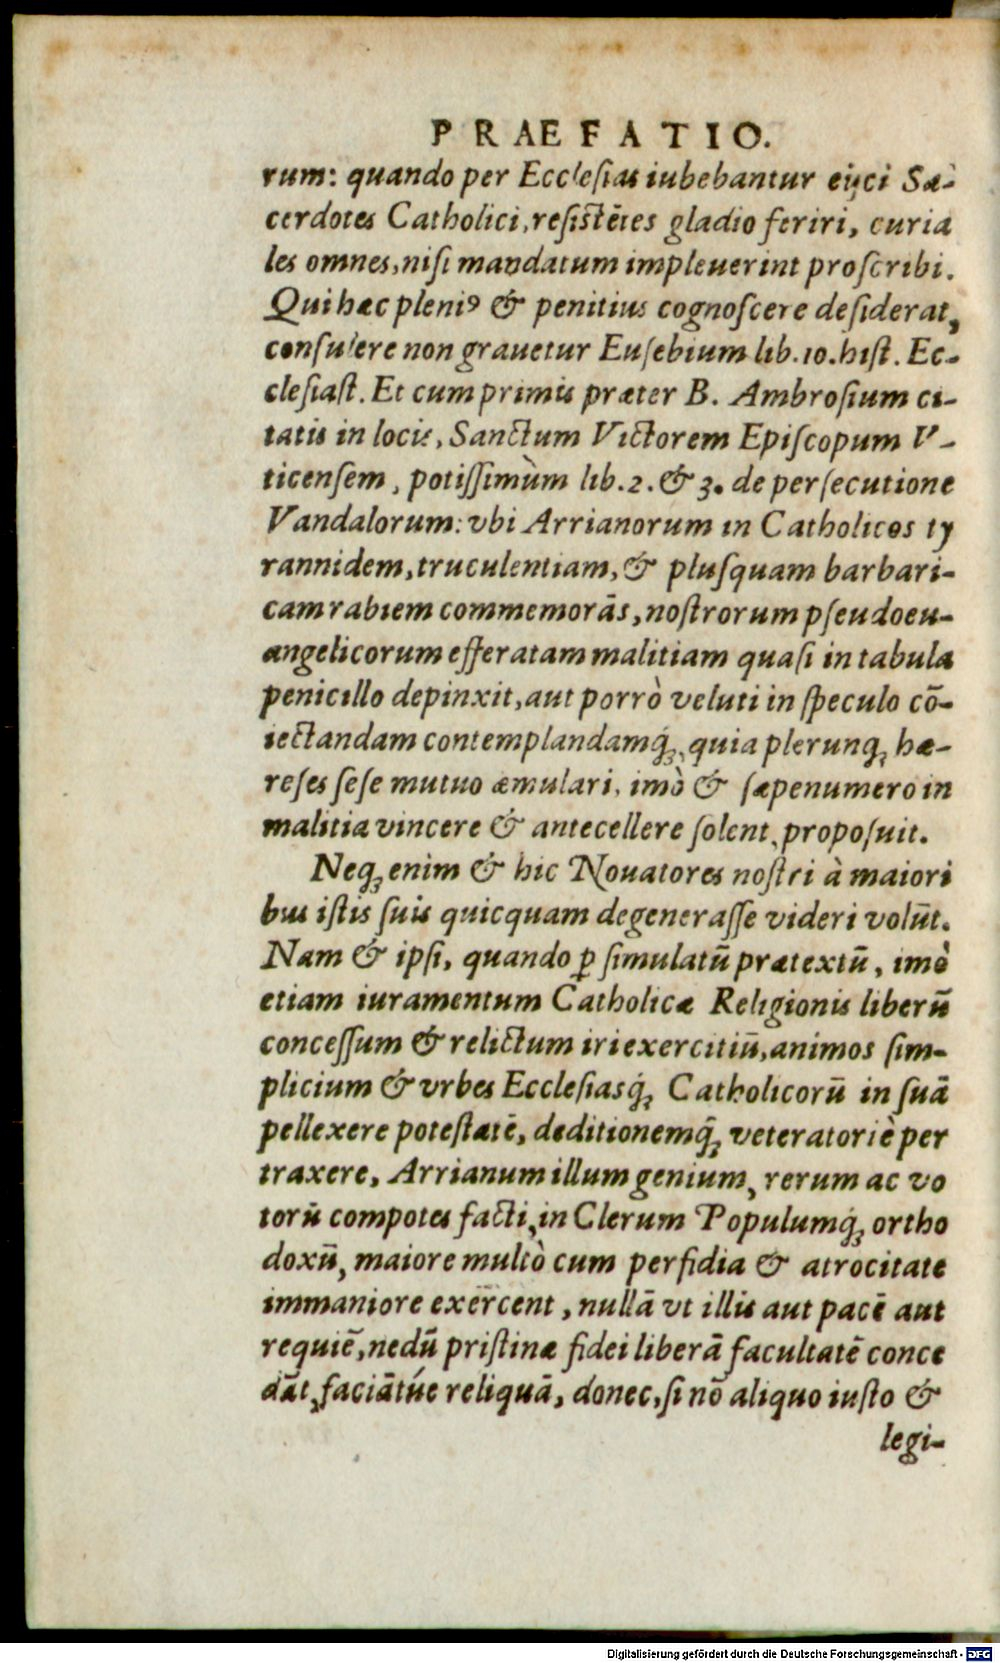 PRAEFATIO.
rum: quando per Ecclesias iubebantur eijci Sa-
cerdotes Catholici, resistētes gladio feriri, curia
les omnes, nisi mandatum impleuerint proscribi.
Qui hæc pleniꝰ & penitius cognoscere desiderat,
consulere non grauetur Eusebium lib. 10. hist. Ec-
clesiast. Et cum primis præter B. Ambrosium ci-
tatis in locis, Sanctum Victorem Episcopum V-
ticensem, potissimùm lib. 2. & 3. de persecutione
Vandalorum: vbi Arrianorum in Catholicos ty
rannidem, truculentiam, & plusquam barbari-
cam rabiem commemorās, nostrorum pseudoeu-
angelicorum efferatam malitiam quasi in tabula
penicillo depinxit, aut porrò veluti in speculo cō-
iectandam contemplandamq́ꝫ, quia plerunqꝫ hæ-
reses sese mutuo æmulari, imò & sæpenumero in
malitia vincere & antecellere solent, proposuit.
Neqꝫ enim & hic Nouatores nostri à maiori
bus istis suis quicquam degenerasse videri volūt.
Nam & ipsi, quando ꝑ simulatū prætextū, imò
etiam iuramentum Catholicæ Religionis liberū
concessum & relictum iri exercitiū, animos sim-
plicium & vrbes Ecclesiasq́ꝫ Catholicorū in suā
pellexere potestatē, deditionemq́ꝫ veteratoriè per
traxere, Arrianum illum genium, rerum ac vo
torū compotes facti, in Clerum Populumq́ꝫ ortho
doxū, maiore multò cum perfidia & atrocitate
immaniore exercent, nullā vt illis aut pacē aut
requiē, nedū pristinæ fidei liberā facultatē conce
dāt, faciātúe reliquā, donec, si nō aliquo iusto &
legi-
Digitalisierung gefördert durch die Deutsche Forschungsgemeinschaft - DFG